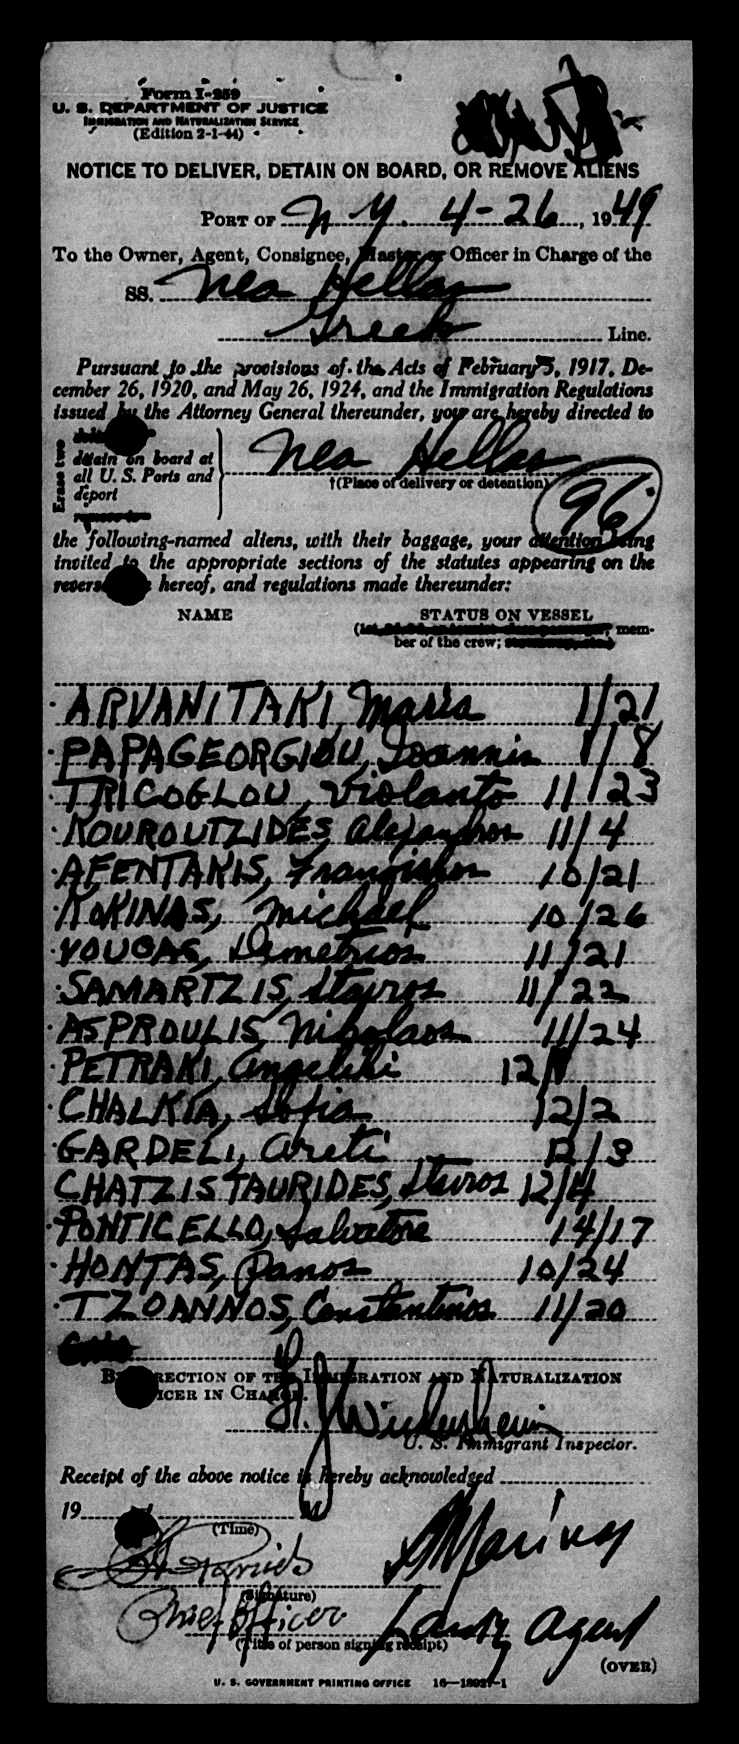 Form I-259
U. S. DEPARTMENT OF JUSTICE
IMMIGRATION AND NATURALIZATION SERVICE
(Edition 2-1-44)
NOTICE TO DELIVER, DETAIN ON BOARD, OR REMOVE ALIENS
PORT OF N. Y. 4-26, 1949
To the Owner, Agent, Consignee, Master or Officer in Charge of the
SS. Nea Hellas
Greek Line.
Pursuant to the provisions of the Acts of February 5, 1917, De-
cember 26, 1920, and May 26, 1924, and the Immigration Regulations
issued by the Attorney General thereunder, you are hereby directed to
Erase two
detain on board at
all U. S. Ports and
deport
Nea Hellas
†(Place of delivery or detention)
96
the following-named aliens, with their baggage, your attention being
invited to the appropriate sections of the statutes appearing on the
reverse hereof, and regulations made thereunder:
NAME STATUS ON VESSEL
mem-
ber of the crew;
ARVANITAKI, Maria 1/21
PAPAGEORGIOU, Ioannis 1/8
TRICOGLOU, Violanto 11/23
KOUROUTZIDES, Alexandros 11/4
AFENTAKIS, Frangiskos 10/21
KOKINAS, Michael 10/26
VOUGAS, Demetrios 11/21
SAMARTZIS, Stavros 11/22
ASPROULIS, Nikolaos 11/24
PETRAKI, Angeliki 12/1
CHALKIA, Sofia 12/2
GARDELI, Areti 12/3
CHATZISTAURIDES, Stavros 12/4
PONTICELLO, Salvatore 14/17
HONTAS, Panos 10/24
TZOANNOS, Constantinos 11/20
BY DIRECTION OF THE IMMIGRATION AND NATURALIZATION
OFFICER IN CHARGE.
U. S. Immigrant Inspector.
Receipt of the above notice is hereby acknowledged
19 M
(Time)
(Signature)
Chief Officer
Landg Agent
(Title of person signing receipt)
(OVER)
U. S. GOVERNMENT PRINTING OFFICE 16—18927-1